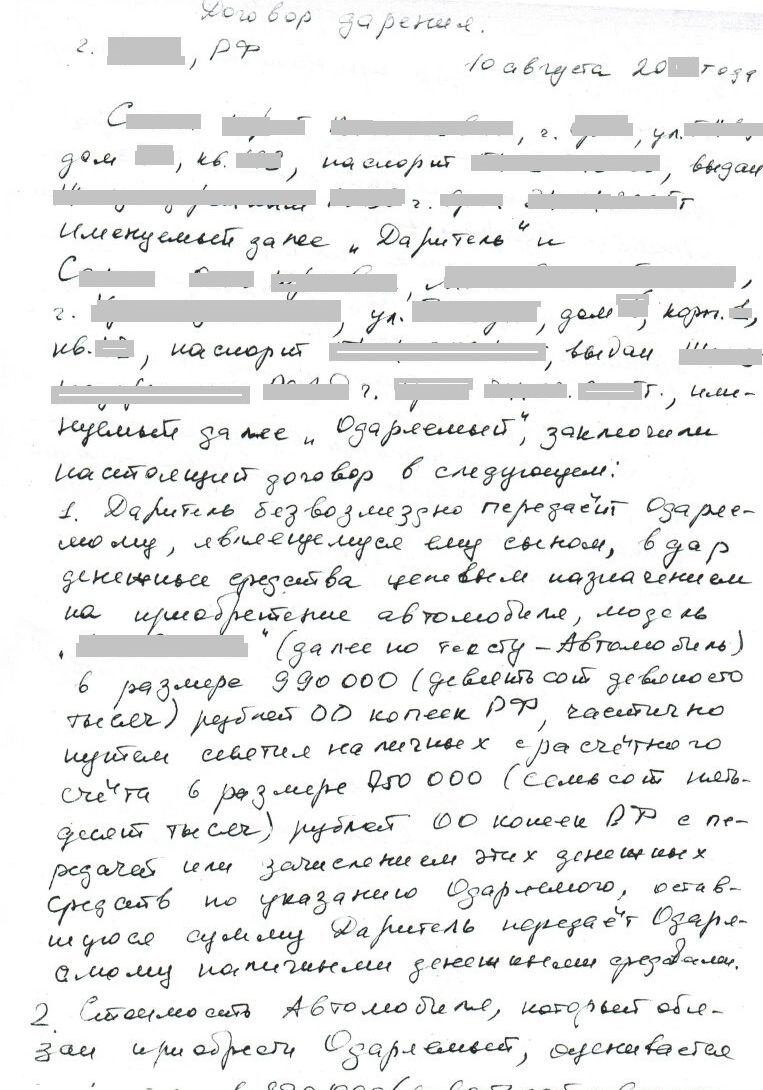 Договор дарения.
г. , РФ
10 августа 20 года
С , г. , ул.
дом , кв. , паспорт , выдан
г.
именуемый далее „Даритель“ и
С ,
г. , ул. , дом , корп. 1,
кв. , паспорт , выдан
г. , име-
нуемый далее „Одаряемый“, заключили
настоящий договор в следующем:
1. Даритель безвозмездно передаёт Одаряе-
мому, являющемуся ему сыном, в дар
денежные средства целевым назначением
на приобретение автомобиля, модель
„ “ (далее по тексту – Автомобиль)
в размере 990 000 (девятьсот девяносто
тысяч) рублей 00 копеек РФ, частично
путём снятия наличных с расчётного
счёта в размере 750 000 (семьсот пять-
десят тысяч) рублей 00 копеек РФ с пе-
редачей или зачислением этих денежных
средств по указанию Одаряемого, остав-
шуюся сумму Даритель передаёт Одаря-
емому наличными денежными средствами.
2. Стоимость Автомобиля, который обя-
зан приобрести Одаряемый, оценивается